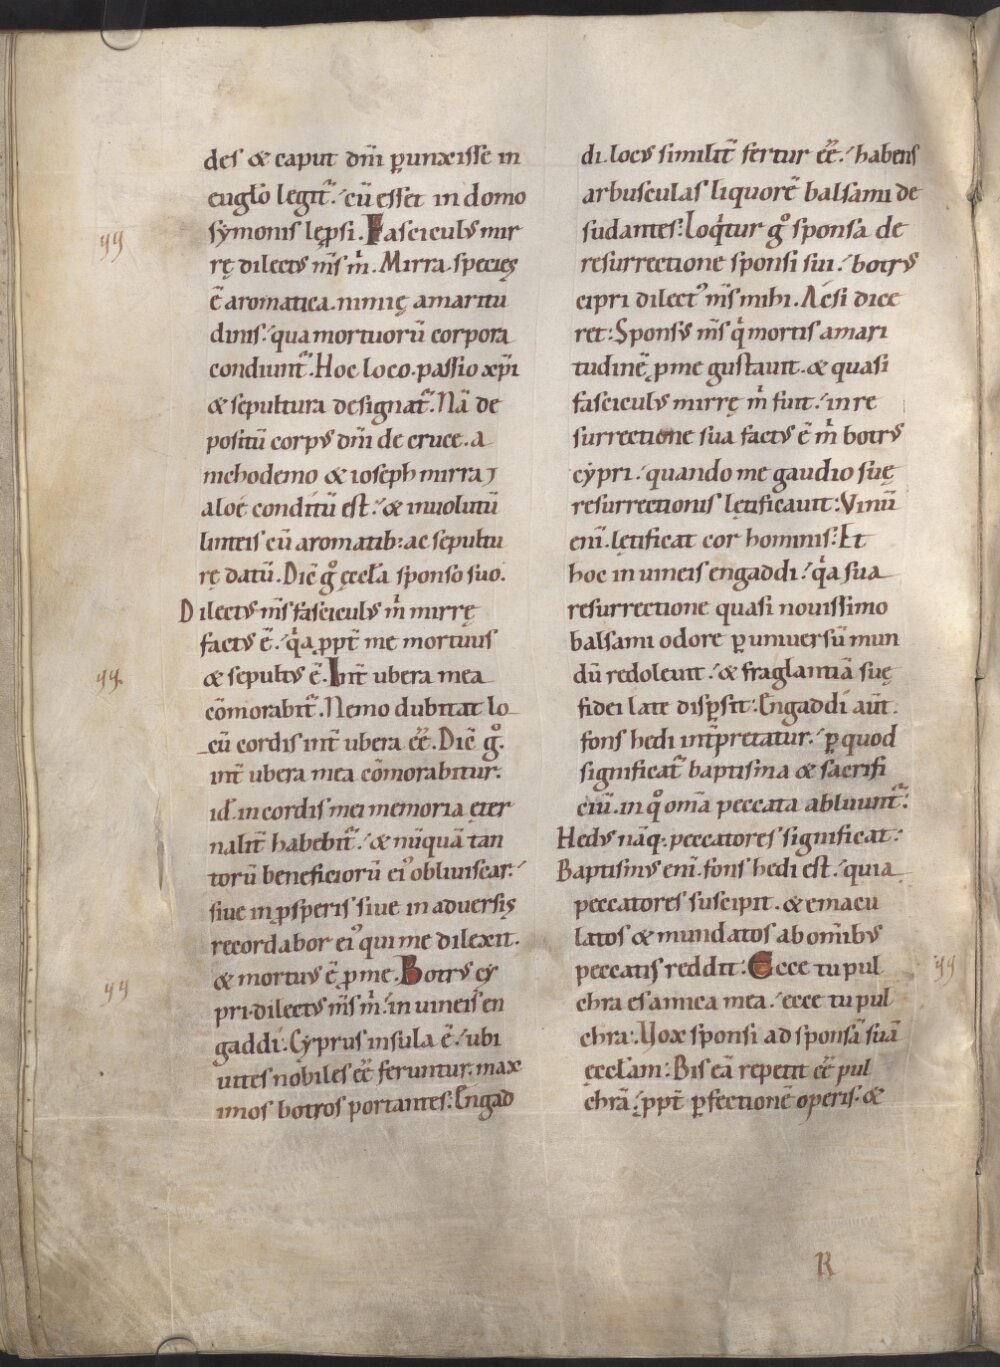 des & caput dm̄i p̲unxisse in
eugło legit᷑ ./ cū esset in domo
symonis lep̲si . Fasciculꝰ mir
rę dilectꝰ m̄s m̊ . Mirra . species
ē aromatica . nimię amaritu
dinis ./ qua mortuorū corpora
condiunt᷑ . Hoc loco . passio xp̄i
& sepultura designat᷑ . Nā de
positū corpꝰ dm̄i de cruce . a
nichodemo & ioseph mirra ⁊
aloé condítū est ./ & inuolutū
linteis cū aromatib: ac sepultu
rę datū . Dic̄ g̊ ęccła sponso suo .
Dilectꝰ m̄s fasciculꝰ m̊ mirrę
factꝰ ē ./ q̊a ppt̄ me mortuus
& sepultꝰ ē . Int̄ ubera mea
cōmorabit᷑ . Nemo dubitat lo
cū cordis int̄ ubera eē̄ . Dic̄ g̊ .
int̄ ubera mea cōmorabitur .
id . in cordis mei memoria ęter
nalit̄ habebit᷑ ./ & nūquā tan
torū beneficiorū eiꝰ obliuiscar ./
siue in p̲speris siue in aduersis
recordabor eiꝰ qui me dilexit .
& mortuꝰ ē p̲ me . Botrꝰ cy
pri dilectꝰ m̄s m̊ ./ in uineis en
gaddi . Cyprus insula ē ./ ubi
uites nobiles eē̄ feruntur . max
imos botros portantes : Engad
di . locꝰ similit̄ fertur eē̄ ./ habens
arbusculas liquorē balsami de
sudantes : Loq̊tur g̊ sponsa de
resurrectione sponsi sui ./ botrꝰ
cipri dilectꝰ m̄s mihi . Ac si dice
ret : Sponsꝰ m̄s q̊ mortis amari
tudinē p̲ me gustauit . & quasi
fasciculꝰ mirrę m̊ fuit ./ in re
surrectione sua factꝰ ē m̊ botrꝰ
cypri ./ quando me gaudio suę
resurrectionis lętificauit : Vinū
eni̅ . lętificat cor hominis : Et
hoc in uineis engaddi ./ q̊a sua
resurrectione quasi nouissimo
balsami odore p̲ uniuersū mun
dū redoleuit ./ & fraglantiā suę
fidei late disp̲sit : Engaddí aūt .
fons hedi int̄pretatur ./ p̲ quod
significat᷑ baptisma & sacrifi
ciū . in q̊ om̄a peccata abluunt᷑ :
Hedꝰ nāq; . peccatores significat :
Baptismꝰ eni̅ . fons hedi est ./ quia
peccatores suscipit . & emacu
latos & mundatos ab om̄ibꝰ
peccatis reddit : Ecce tu pul
chra es amica mea ./ ecce tu pul
chra . Uox sponsi ad sponsā suā
ęccłam : Bis eā repetit eē̄ pul
chrā ./ ppt̄ p̲fectionē operis . &
R